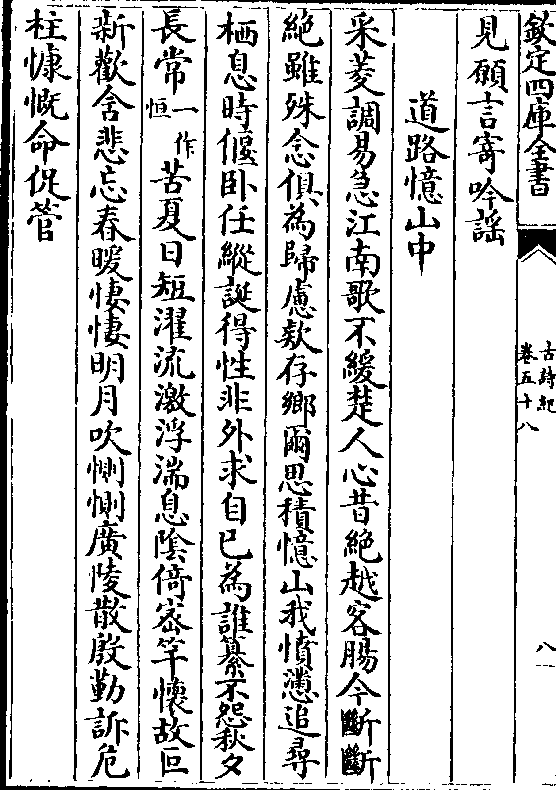 欽定四庫全書
古詩紀
卷五十八
八
見願言寄吟謡
道路憶山中
采菱調易急江南歌不緩楚人心昔絶越客腸今斷斷
絶雖殊念俱為歸慮欵存鄉爾思積憶山我憤懣追尋
栖息時偃卧任縱誕得性非外求自已為誰纂不怨秋夕
長常一作恒苦夏日短濯流激浮湍息陰倚宻竿懷故叵
新歡含悲忘春暖悽悽明月吹惻惻廣陵散殷勤訴危
柱慷慨命促管